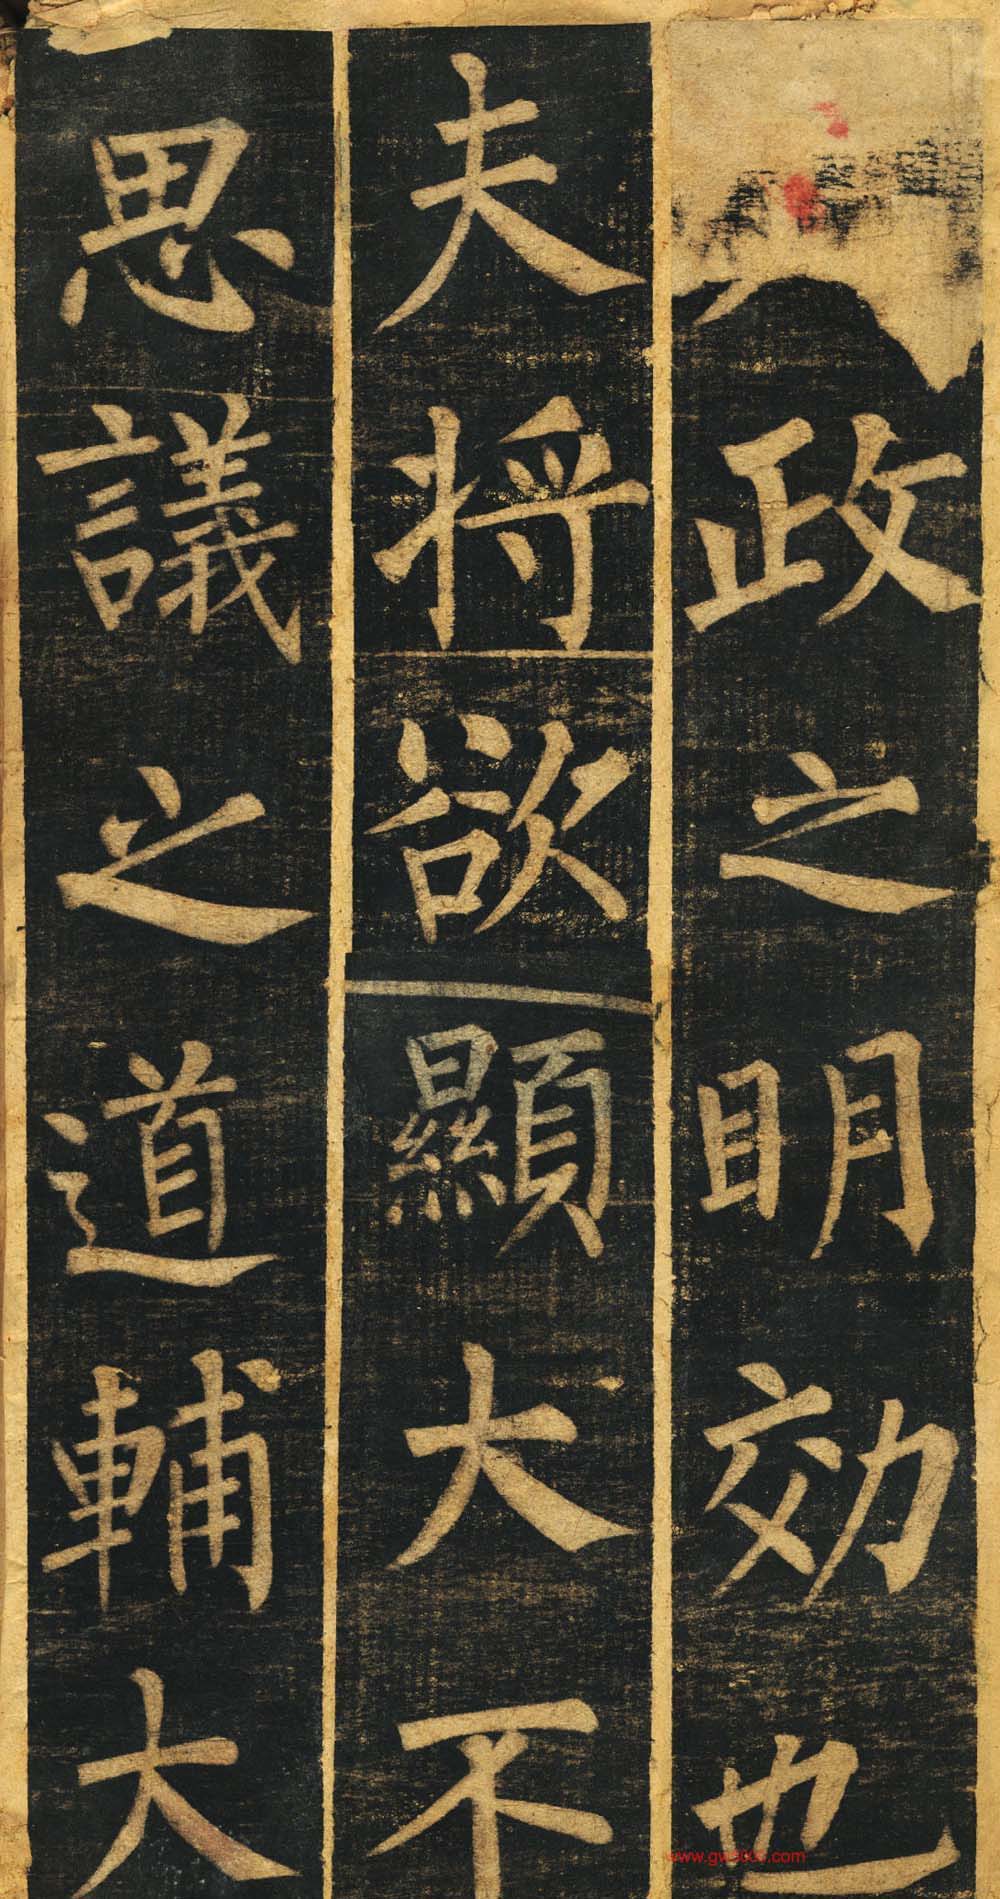 政之明効也
夫将欲顯大不
思議之道輔大
www.gw8668.com